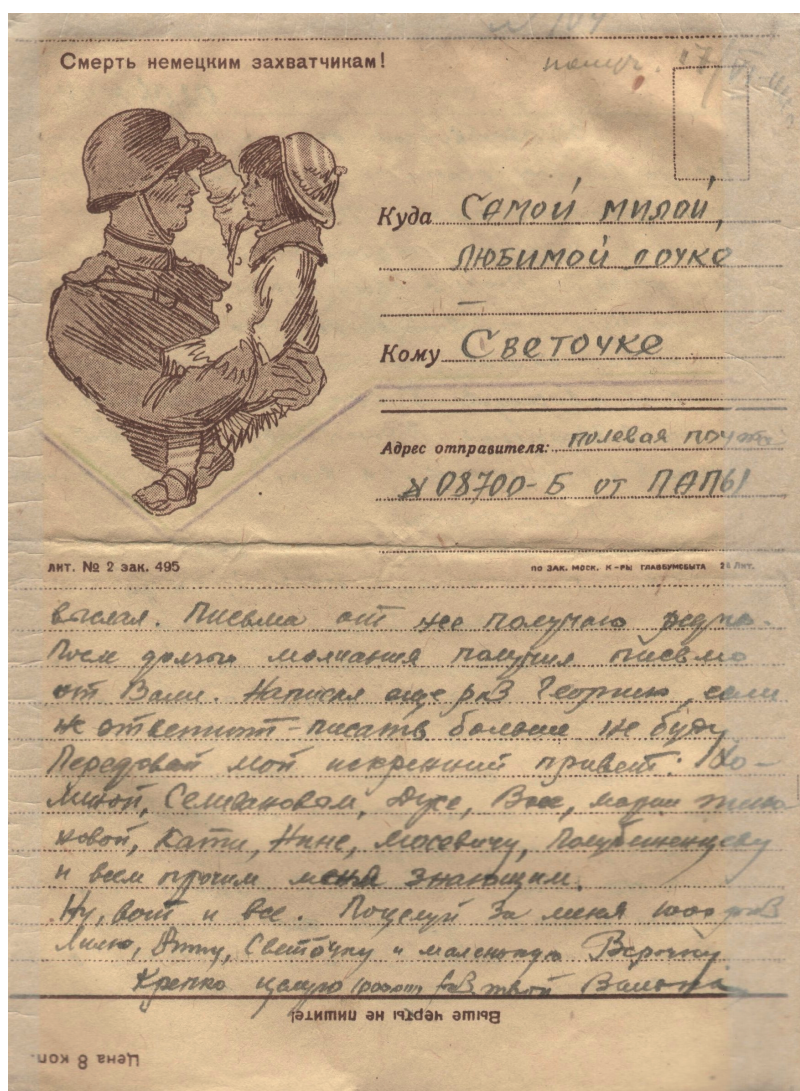 Смерть немецким захватчикам!
получ.
Куда Самой милой,
любимой дочке
Кому Светочке
Адрес отправителя: полевая почта
№ 08700-Б от ПАПЫ
лит. № 2 зак. 495
по зак. моск. к-ры главбумсбыта
выслал. Письма от нее получаю редко.
После долгого молчания получил письмо
от Вали. Написал еще раз Георгию, если
не ответит - писать больше не буду
Передавай мой искренний привет:
Селивановым, Дусе, Вале, Марии
Кати, Нине, Мосевичу,
и всем прочим меня знающим.
Ну, вот и все. Поцелуй за меня 1000 раз
Лилю, Светочку и маленькую Верочку
Крепко целую раз твой
Выше черты не пишите!
Цена 8 коп.